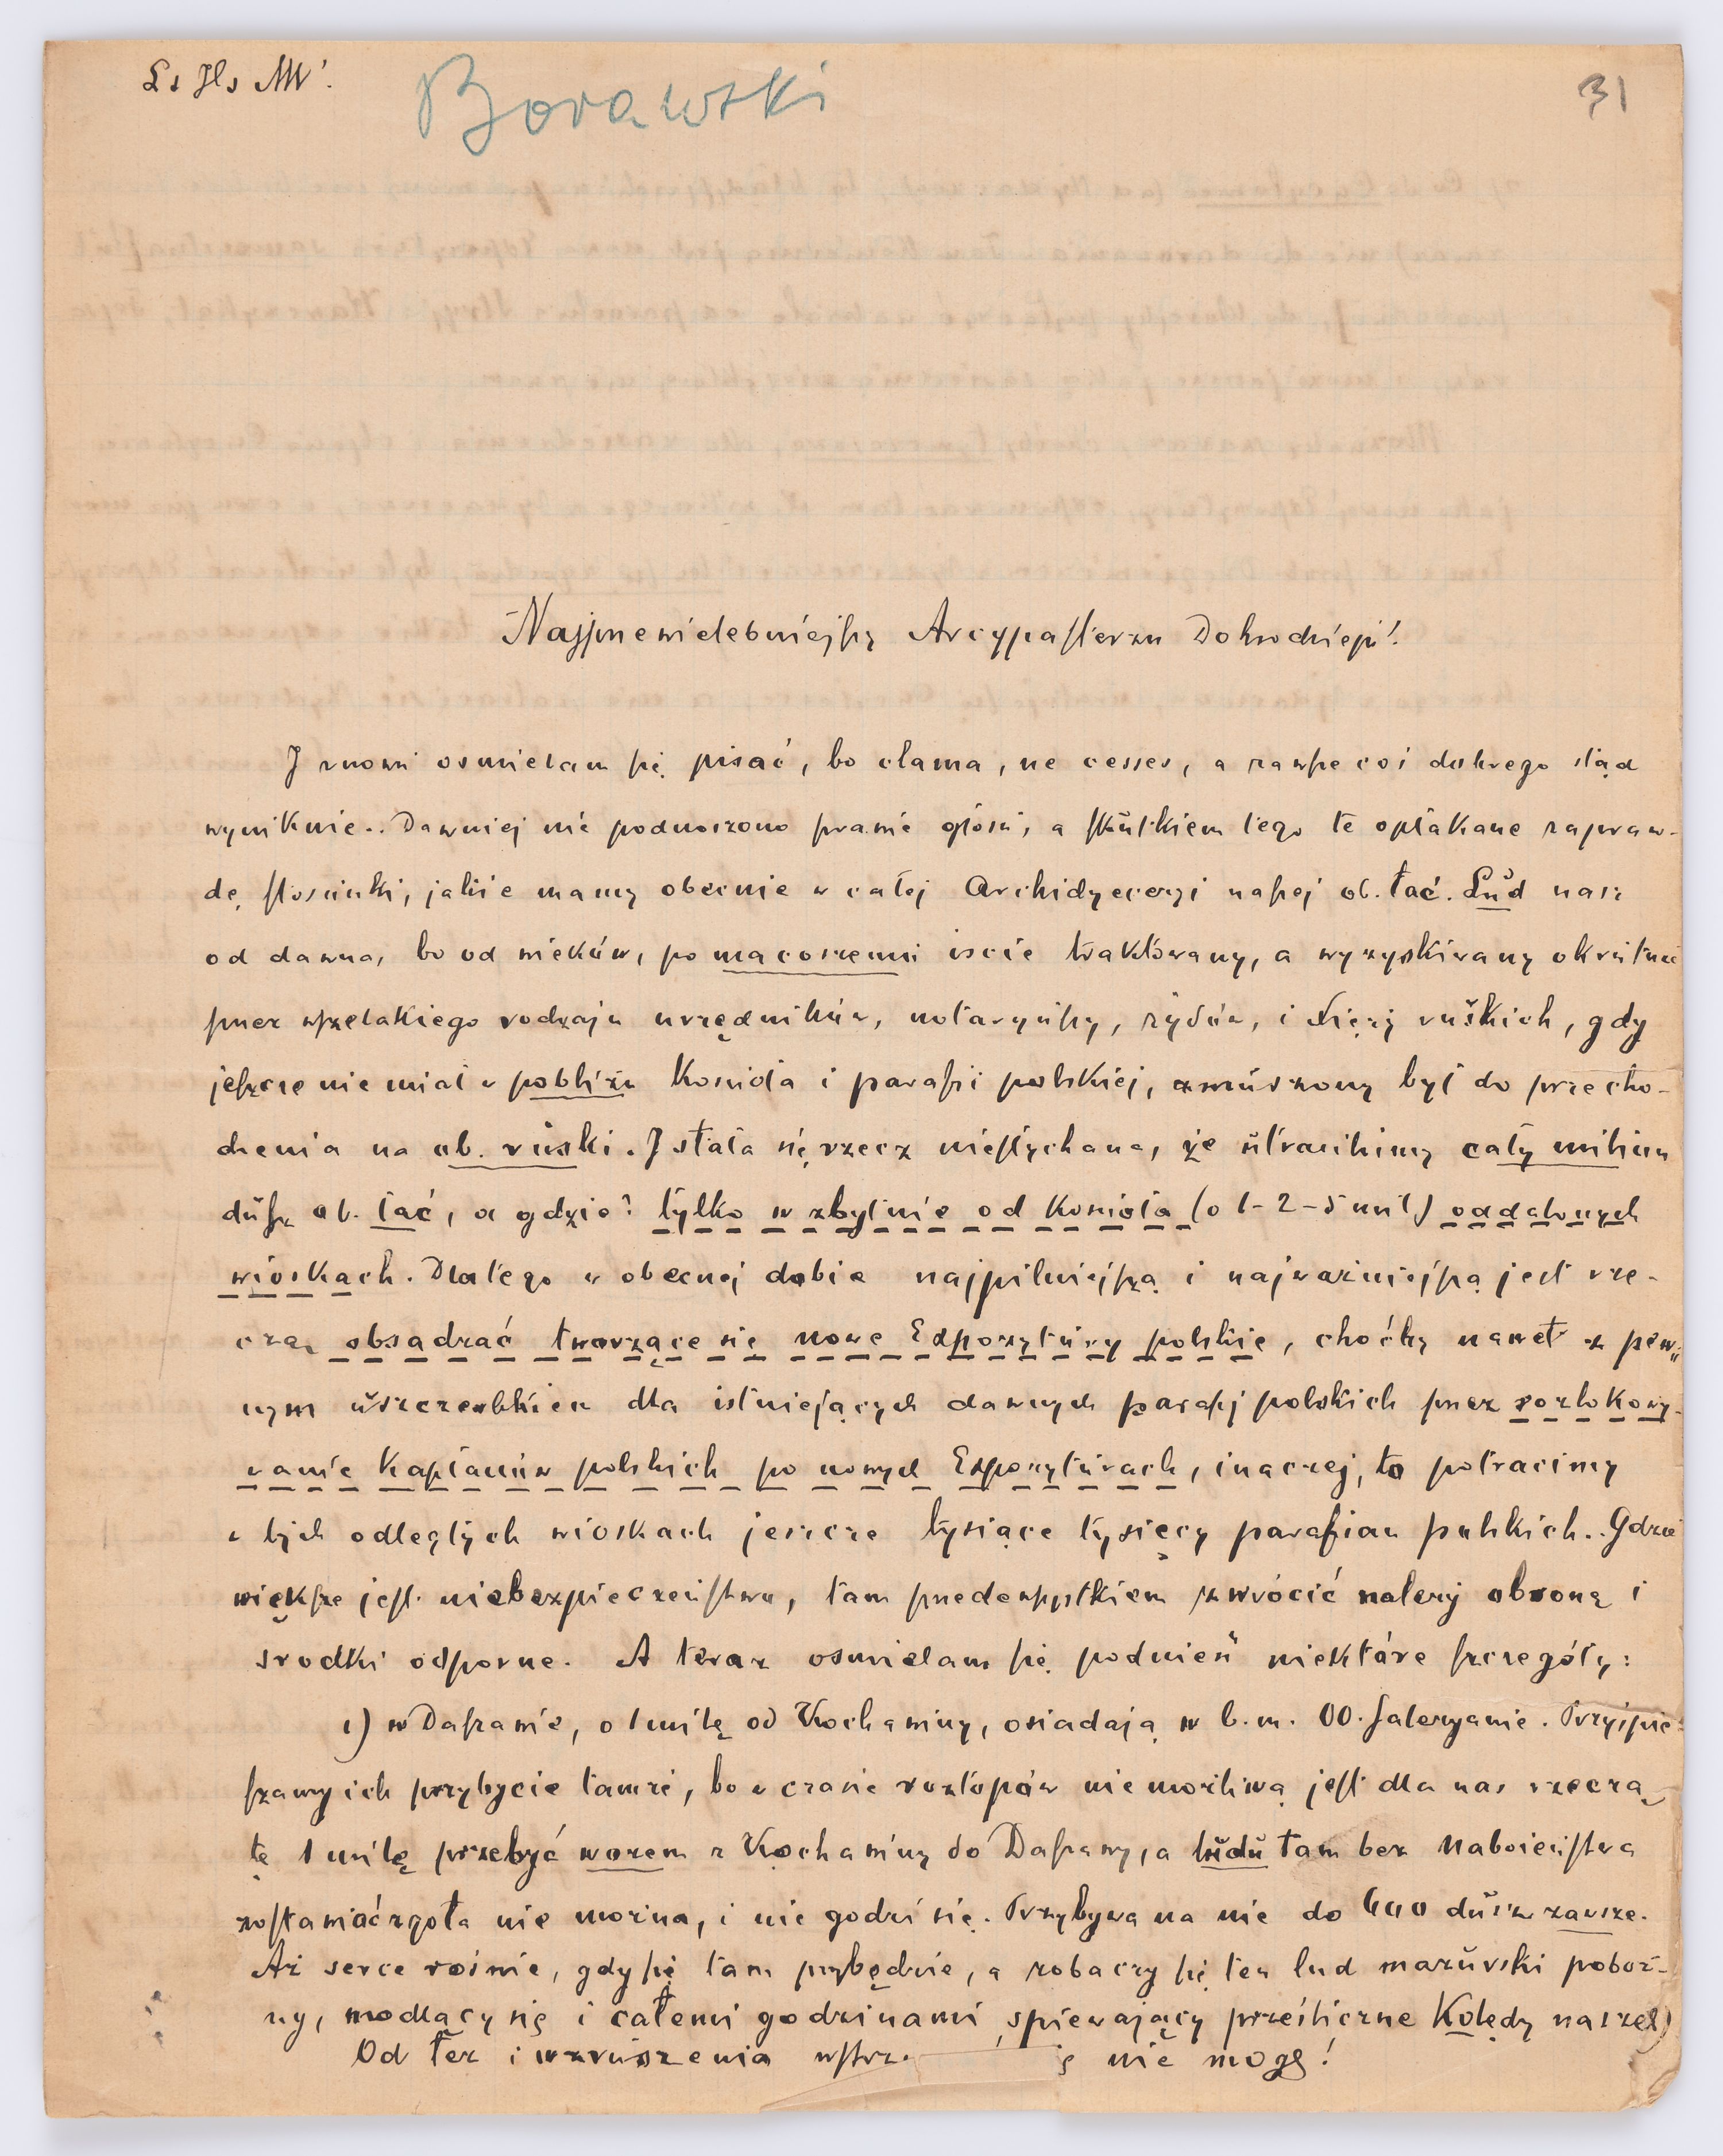 Ls Jls MN!
Borawski
31
Najprzewielebniejszy Arcypasterzu Dobrodzieju!
I znowu osmielam się pisać, bo clama, ne cesses, a zawsze coś dobrego stąd
wyniknie.. Dawniej nie podnoszono prawie głosu, a skutkiem tego te opłakane zapraw-
dę stosunki, jakie mamy obecnie w całej Archidyecezyi naszej ob. łać. Lud nasz
od dawna, bo od wieków, po macoszemu iście traktowany, a wyzyskiwany okrutnie
przez wszelakiego rodzaju urzędników, notaryuszy, żydów, i Księży ruskich, gdy
jeszcze nie miał w pobliżu Kościoła i parafii polskiej, zmuszony był do przecho-
dzenia na ob. ruski. I stała się rzecz niesłychana, że utraciliśmy cały milion
dusz ob. łać, a gdzie? tylko w zbytnie od Kościoła (o 1-2-5 mil) oddalonych
wioskach. Dlatego w obecnej dobie najpilniejszą i najważniejszą jest rze-
czą obsadzać tworzące się nowe Expozytury polskie, choćby nawet z pew-
nym uszczerbkiem dla istniejących dawnych parafij polskich przez rozlokowy-
wanie Kapłanów polskich po nowych Expozyturach, inaczej, to potracimy
w tych odległych wioskach jeszcze tysiące tysięcy parafian polskich.. Gdzie
większe jest niebezpieczeństwo, tam przedewszystkiem zwrócić należy obronę i
srodki odporne. A teraz osmielam się podnieść niektóre szczegóły:
1) w Daszawie, o 1 milę od Kochawiny, osiadają w b. m. OO. Saleryanie. Przyspie-
szamy ich przybycie tamże, bo w czasie roztopów niemożliwą jest dla nas rzeczą
tę 1 milę przebyć wozem z Kochawiny do Daszawy, a ludu tam bez Nabożeństwa
zostawiać zgoła nie można, i nie godzi się. Przybywa na nie do 600 dusz zawsze.
Aż serce rośnie, gdy się tam przybędzie, a zobaczy się ten lud mazurski poboż-
ny, modlący się i całemi godzinami śpiewający prześliczne Kolędy nasze!)
Od łez i wzruszenia wstrz. ę nie mogę!